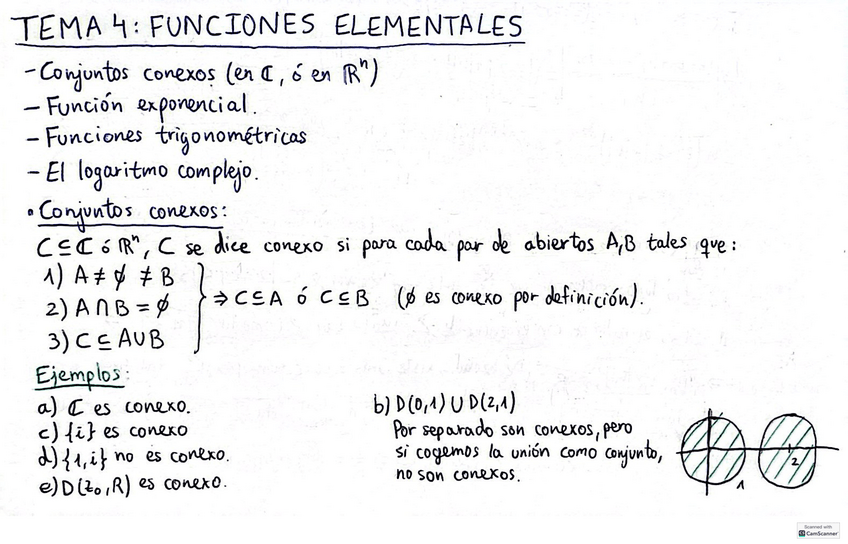 TEMA 4: FUNCIONES ELEMENTALES
- Conjuntos conexos (en ℂ, ó en ℝⁿ)
- Función exponencial.
- Funciones trigonométricas
- El logaritmo complejo.
• Conjuntos conexos:
C ⊆ ℂ ó ℝⁿ, C se dice conexo si para cada par de abiertos A,B tales que:
1) A ≠ ∅ ≠ B
2) A ∩ B = ∅
3) C ⊆ A∪B
⇒ C ⊆ A ó C ⊆ B (∅ es conexo por definición).
Ejemplos:
a) ℂ es conexo.
c) {i} es conexo
d) {1,i} no es conexo.
e) D(z₀,R) es conexo.
b) D(0,1) ∪ D(2,1)
Por separado son conexos, pero
si cogemos la unión como conjunto,
no son conexos.
1
2
Scanned with
CS CamScanner